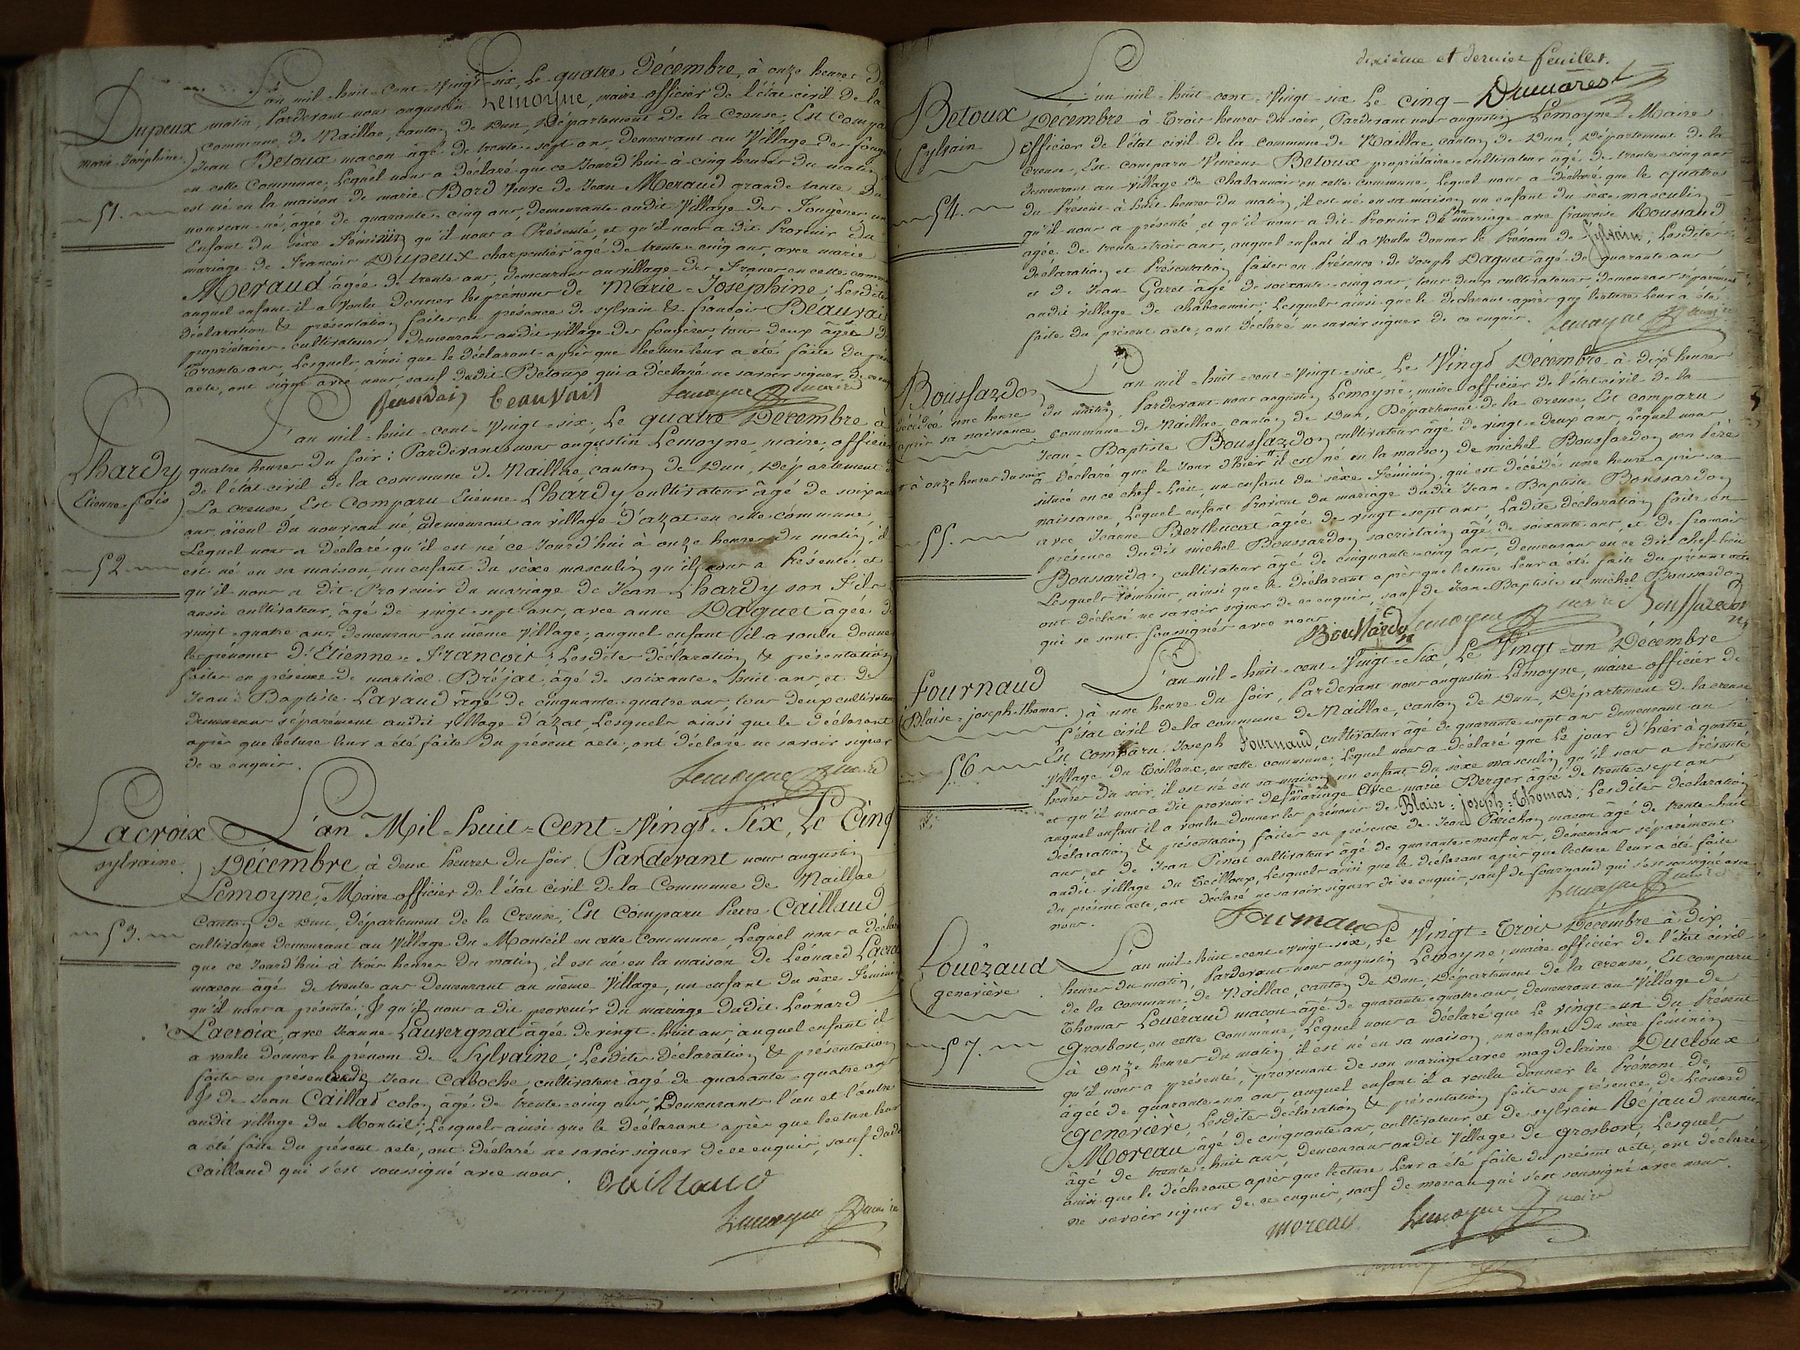 Dupeux
marie-Josephine.
51.
L'an mil-huit-cent-vingt-six, Le quatre Décembre, à onze heures du
matin, Pardevant nous augustin Lemoyne, maire officier de l'état civil de la
Commune de Naillac, canton de Dun, Département de la Creuse, Est comparu
Jean Betoux macon âgé de trente-sept ans, demeurant au Village des
en cette Commune, Lequel nous a déclaré que ce Jourd'hui à cinq heures du matin
est né en la maison de marie Bord Veuve de Jean Meraud grande tante du
nouveau-né, âgée de quarante-cinq ans, demeurante audit Village des Fougères un
Enfant du sèxe Féminin qu'il nous a Présenté, et qu'il nous a dit Provenir du
mariage de Francois Dupeux charpentier âgé de trente-cinq ans, avec marie
Meraud âgée de trente ans, demeurans au village des en cette commune
auquel enfant il a Voulu donner les prénoms de Marie-Josephine; Lesdites
déclaration & présentation faites en présence de sylvain & francois Beauvais
propriétaires-cultivateurs demeurans audit village des tous deux âgés de
trente ans, Lesquels, ainsi que le déclarant après que lecture leur a été faite du présent
acte, ont signé avec nous, sauf dudit Betoux qui a déclaré ne savoir signer
Beauvais beauvais Lemoyne maire
Lhardy
Etienne-fois
52.
L'an mil-huit-cent-vingt-six, Le quatre Décembre à
quatre heures du soir; Pardevant nous augustin Lemoyne, maire, officier
de l'état civil de la commune de Naillac, canton de Dun, Département de
La creuse, Est Comparu Etienne Lhardy cultivateur âgé de soixante
ans, aïeul du nouveau né, demeurant au village d'azat en cette commune
Lequel nous a déclaré qu'il est né ce Jourd'hui à onze heures du matin, il
est né en sa maison un enfant du sèxe masculin qu'il nous a Présenté, et
qu'il nous a dit Provenir du mariage de Jean Lhardy son Fils
aussi cultivateur, âgé de vingt-sept ans, avec anne Daguet âgée de
vingt-quatre ans, demeurans au même Village; auquel enfant il a voulu donner
les prénoms d'Etienne-Francois; Lesdites déclaration & présentation
faites en présence de martial Bréjat, âgé de soixante-huit ans, et de
Jean-Baptiste Lavaud âgé de cinquante-quatre ans, tous deux cultivateurs
demeurans séparément audit village d'azat, Lesquels ainsi que le déclarant
après que lecture leur a été faite du présent acte, ont déclaré ne savoir signer
de ce enquis.
Lemoyne maire
Lacroix
sylvaine.
53.
L'an Mil-huit-Cent-Vingt-Six, Le Cinq
Décembre, à deux heures du soir, Pardevant nous augustin
Lemoyne, Maire officier de l'état civil de la Commune de Naillac
Canton de Dun, département de la Creuse; Est Comparu Pierre Caillaud
cultivateur demeurant au Village du Monteil en cette Commune, Lequel nous a déclaré
que ce Jourd'hui à trois heures du matin, il est né en la maison de Léonard Lacroix
macon âgé de trente ans demeurant au même Village, un enfant du sèxe Féminin
qu'il nous a présenté; & qu'il nous a dit provenir du mariage dudit Léonard
Lacroix, avec Jeanne Lauvergnat âgée de vingt-huit ans; auquel enfant il
a voulu donner le prénom de Sylvaine; Lesdites déclaration & présentation
faites en présence de Jean Caboche cultivateur âgé de quarante-quatre ans
& de Jean Caillat colon âgé de trente-cinq ans; Demeurants l'un et l'autre
audit village du Monteil; Lesquels ainsi que le déclarant après que lecture leur
a été faite du présent acte, ont déclaré ne savoir signer de ce enquis, sauf dudit
Caillaud qui s'est soussigné avec nous.
Caillaud
Lemoyne maire
dixième et dernier feuillet.
Dumarest
Betoux
Sylvain
54.
L'an mil-huit-cent-Vingt-six Le cinq
Décembre à Trois heures du soir, Pardevant nous augustin Lemoyne Maire
officier de l'état civil de la commune de Naillac, canton de Dun, Département de la
Creuse, Est comparu Vincent Betoux propriétaire-cultivateur âgé de trente-cinq ans
demeurant au village de Chabannois en cette commune, Lequel nous a déclaré que le quatre
du Présent à huit heures du matin, il est né en sa maison un enfant du sèxe masculin
qu'il nous a présenté, et qu'il nous a dit Provenir de son mariage avec françoise Roussaud
âgée de trente-trois ans, auquel enfant il a Voulu donner le Prénom de Sylvain; Lesdites
déclaration et Présentation faites en Présence de Joseph Daguet âgé de quarante ans
et de Jean Garet âgé de soixante-cinq ans, tous deux cultivateurs, demeurans séparément
audit village de chabannois; Lesquels ainsi que le déclarant après que lecture leur a été
faite du présent acte, ont déclaré ne savoir signer de ce enquis. Lemoyne maire
Boussardon
décédée une heure
après sa naissance
à onze heures du soir
55.
L'an mil-huit-cent-vingt-six, Le Vingt Décembre à dix heures
du matin, Pardevant nous augustin Lemoyne, maire officier de l'état civil de la
Commune de Naillac, canton de Dun, Département de la creuse Est comparu
Jean-Baptiste Boussardon cultivateur âgé de vingt-deux ans, Lequel nous
a déclaré que le Jour d'hier il est né en la maison de michel Boussardon son Père
située en ce chef-Lieu, un enfant du sèxe Féminin, qui est décédé une heure après sa
naissance, Lequel enfant Provient du mariage dudit Jean-Baptiste Boussardon
avec Jeanne Berthucat âgée de vingt-sept ans Ladite déclaration faite en
présence dudit michel Boussardon sacristain âgé de soixante ans, et de francois
Boussardon cultivateur âgé de cinquante-cinq ans, demeurans en ce dit chef-lieu
Lesquels témoins, ainsi que le déclarant après que lecture leur a été faite du présent acte
ont déclaré ne savoir signer de ce enquis, sauf de Jean-Baptiste et michel Boussardon
qui se sont soussignés avec nous.
Boussardon Lemoyne maire Boussardon
Fournaud
Blaise-joseph-thomas.
56
L'an mil-huit-cent-Vingt-Six, Le Vingt-un Décembre
à une heure du soir, Pardevant nous augustin Lemoyne, maire officier de
L'état civil de la commune de Naillac, canton de Dun, Département de la creuse
Est comparu Joseph Fournaud, cultivateur âgé de quarante-sept ans demeurant au
Village du Teilloux, en cette commune, Lequel nous a déclaré que le jour d'hier à quatre
heures du soir, il est né en sa maison un enfant du sexe masculin, qu'il nous a Présenté
et qu'il nous a dit provenir de son mariage Avec marie Berger âgée de trente-sept ans
auquel enfant il a voulu donner les prénoms de Blaise-joseph-Thomas; Lesdites déclaration
déclaration & présentation faites en présence de Jean Parichon macon âgé de trente-huit
ans, et de Jean Pinot cultivateur âgé de quarante-neuf ans, demeurans séparément
audit village du Teilloux, Lesquels ainsi que le déclarant après que lecture leur a été faite
du présent acte, ont déclaré ne savoir signer de ce enquis, sauf de Fournaud qui s'est soussigné avec
nous.
Fournaud Lemoyne maire
Louëzaud
geneviève.
57.
L'an mil-huit-cent-Vingt-six, Le Vingt-Trois Décembre à dix
heures du matin, Pardevant nous augustin Lemoyne, maire officier de l'état civil
de la commune de Naillac, canton de Dun, Département de la creuse, Est comparu
Thomas Louezaud macon âgé de quarante-quatre ans, demeurant au Village de
Grosbost, en cette Commune, Lequel nous a déclaré que le vingt-un du Présent
à onze heures du matin, il est né en sa maison, un enfant du sèxe féminin
qu'il nous a présenté, provenant de son mariage avec magdelaine Ducloux
âgée de quarante-un ans, auquel enfant il a voulu donner le Prénom de
Geneviève, Lesdites déclaration & présentation faites en présence de Léonard
Moreau âgé de cinquante ans, cultivateur et de sylvain Réjaud meunier
âgé de trente-huit ans demeurans audit Village de Grosbost, Lesquels
ainsi que le déclarant après que lecture leur a été faite du présent acte, ont déclaré
ne savoir signer de ce enquis, sauf de moreau qui s'est soussigné avec nous.
moreau Lemoyne maire